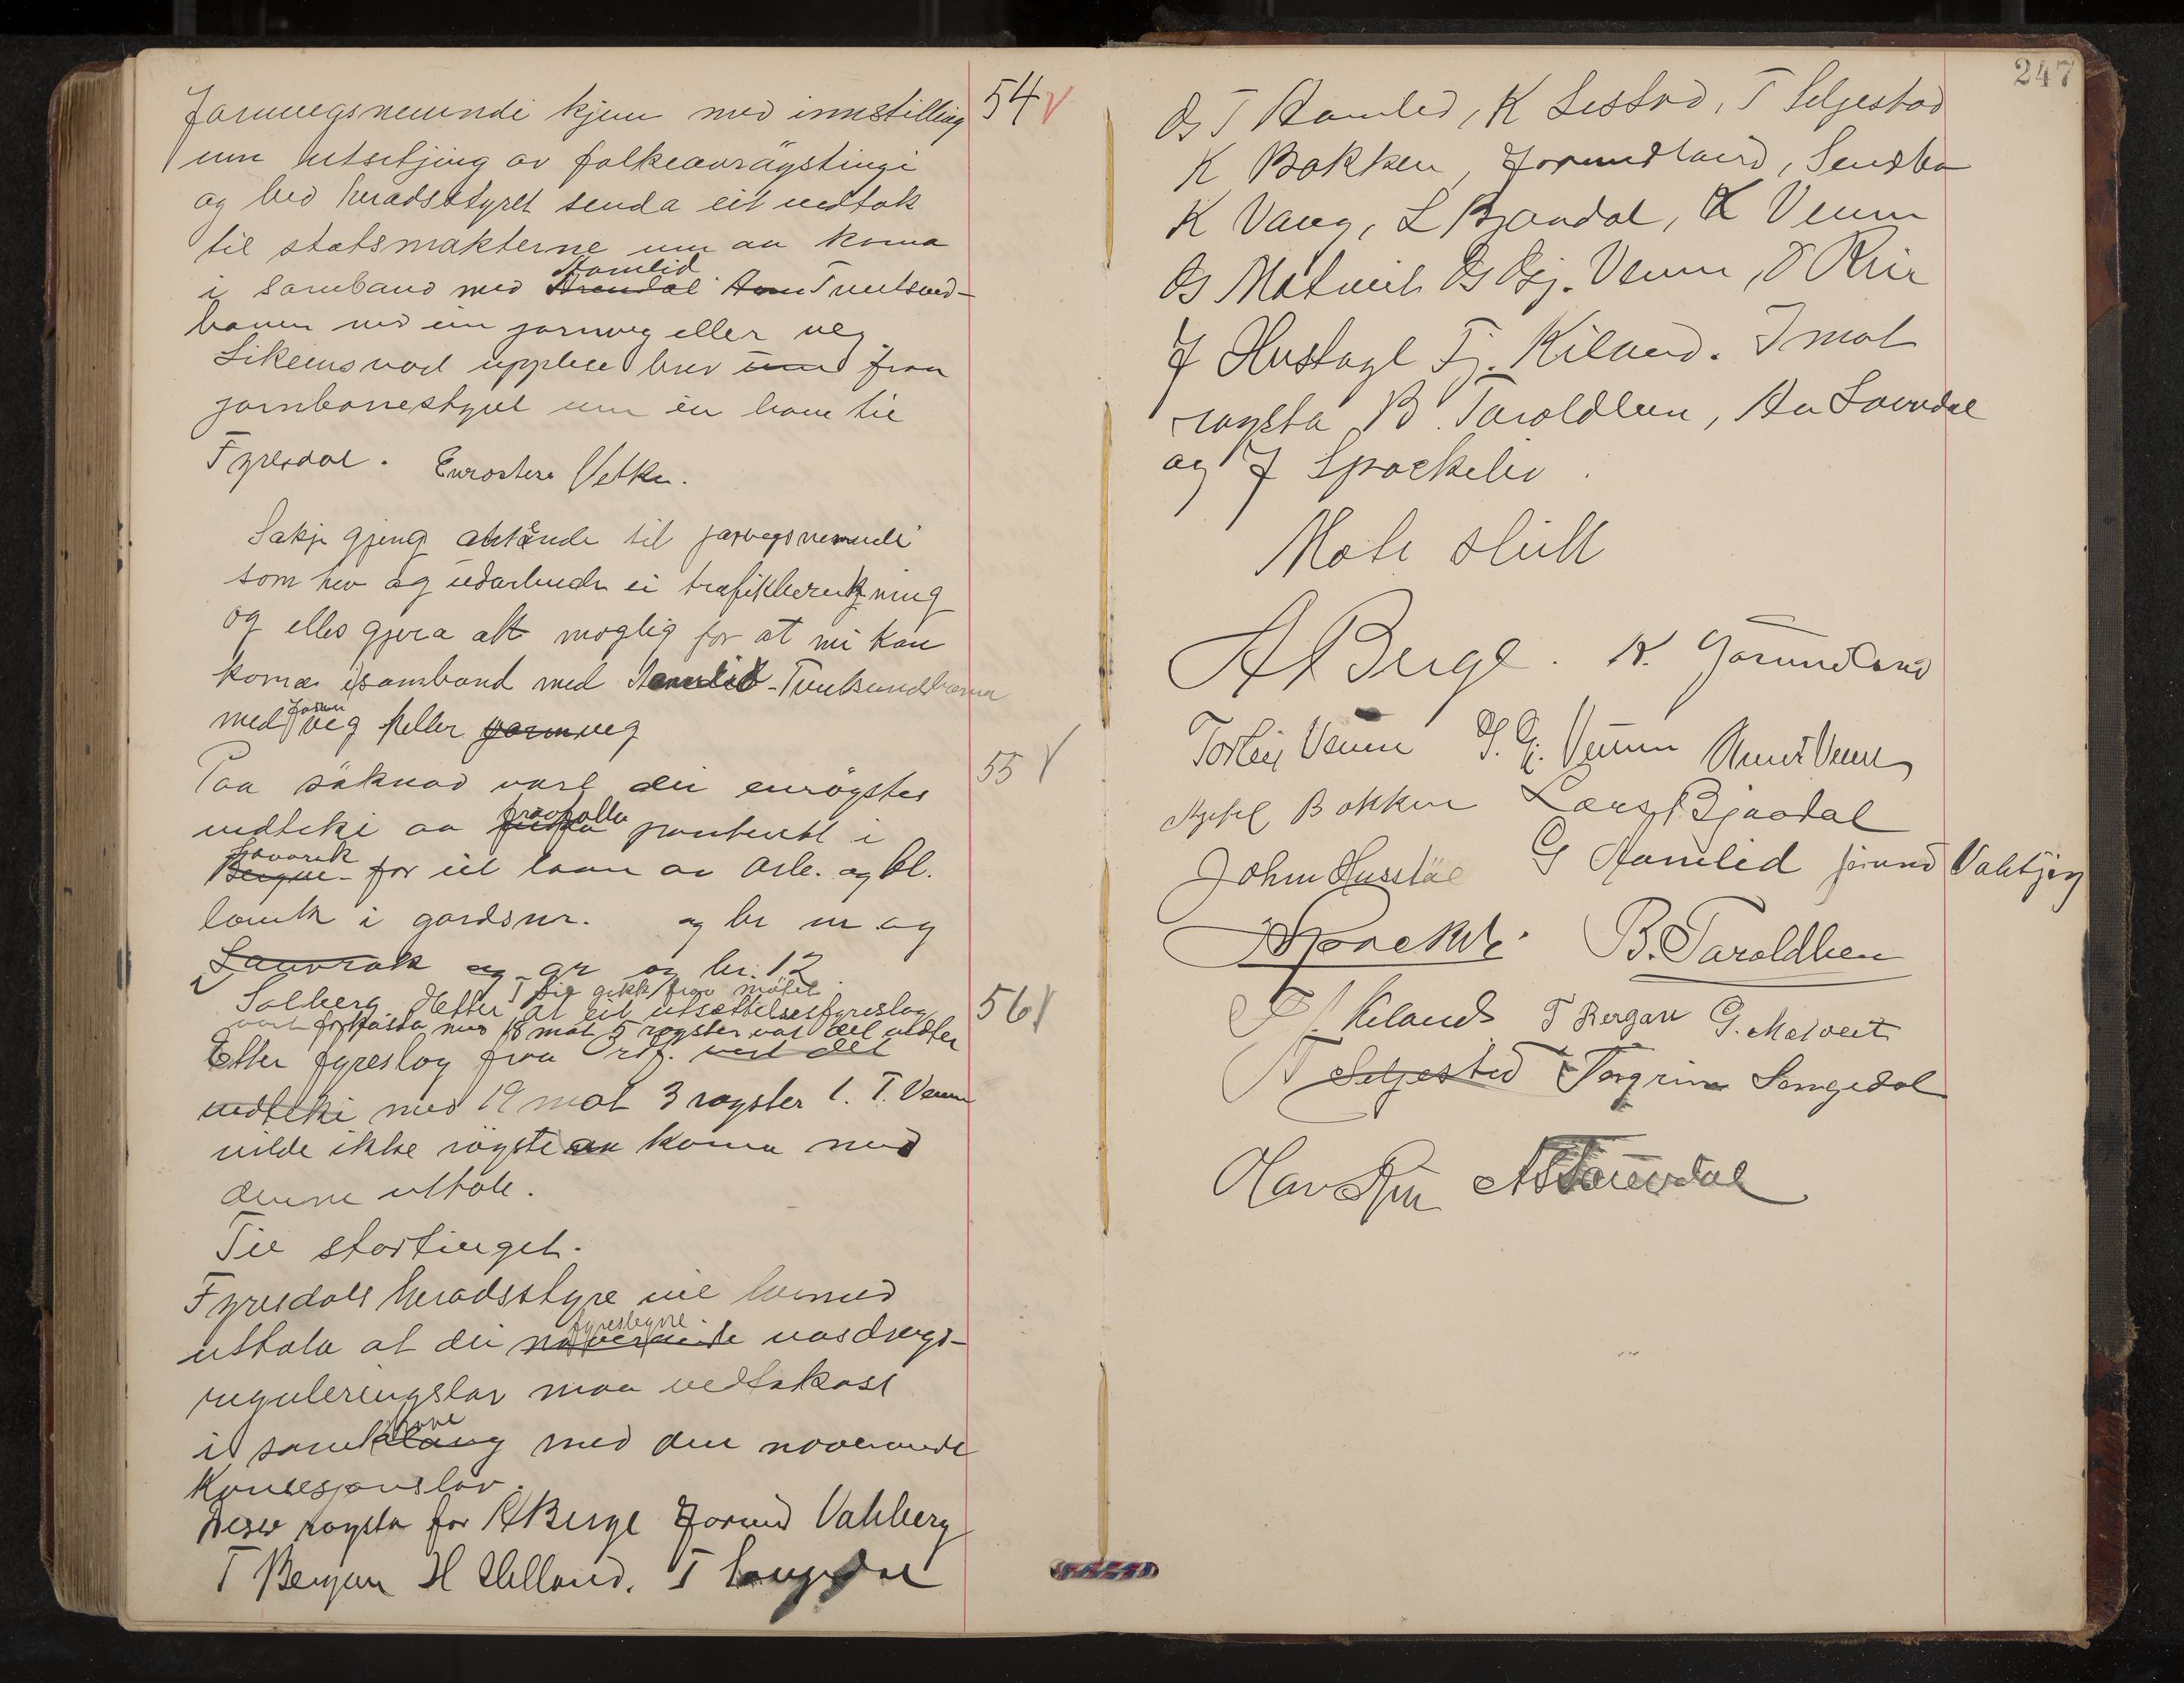 54
Jarnvegsnemndi kjem med innstilling
um utsetjing av folkeavrøystingi
og bed heradsstyret senda eit vedtak
til statsmakterne um aa koma
i samband med Arendal Hamlid Treutsund-
banen med ein jarnveg eller veg
Likeins vart upplese brev um fraa
jarnbanestyret um ein bane til
Fyresdal. Einrøstes Vetke.
Sakje gjeng attende til jarvegsnemndi
som hev og utarbeide ei trafikberekning
og elles gjera alt moglig for at mi kan
koma i samband med Hamlid-Treutsundbana
med Jarnveg heller jarnveg
55
Paa söknad vart dei einrögstes
vedteki aa fraafalla panterett i
Berge Lauvrak for eit laan av Arb. og bl.
bank i gardsnr. og br nr og
Lauvrak og gr og br. 12
i Solberg. T Lie gikk fraa mötet.
56
Etter at eit utsættelsesfyreslag
vart forkasta med 18 mot 5 røyster vart det vedte
Etter fyreslag fraa Ordf. vart det
vedteki med 19 mot 3 røyster 1. T. Veum
vilde ikke röyste aa koma med
denne uttale.
Til stortinget.
Fyresdals heradsstyre vil hermed
uttala at dei noverande fyrelegne vasdrags-
reguleringslov maa vedtakast
i samklang med den noverande
Konsesjonslov.
Desse røysta for A Berge Jorund Vahberg
T Bergan H Helland. T Langedal
247
Gs T Hamlid, K Lisstad, T Seljestad
K Bakken, Jorundland, Sendbo
K Vang, L Bjaadal, K Veum
Gs Matveit Gs Gj. Veum, O Riir
J Hustayl Tj. Kiland. Imot
røysta B. Taraldlien, Aa Lauvdal
og J Spaekeliv.
Møte slutt
A Berge. K. Jorundland
Torleiv Veum G. G. Veum Knut Veum
Kjetil Bakken Lars Bjaadal
John Husstøl G Hamlid Jørund Vahbjørg
J Spaekeli. B. Taraldlien
T J. Kiland T Bergan G. Matveit
T Seljestad Torgrim Langedal
Olav Riir A Lauvdal